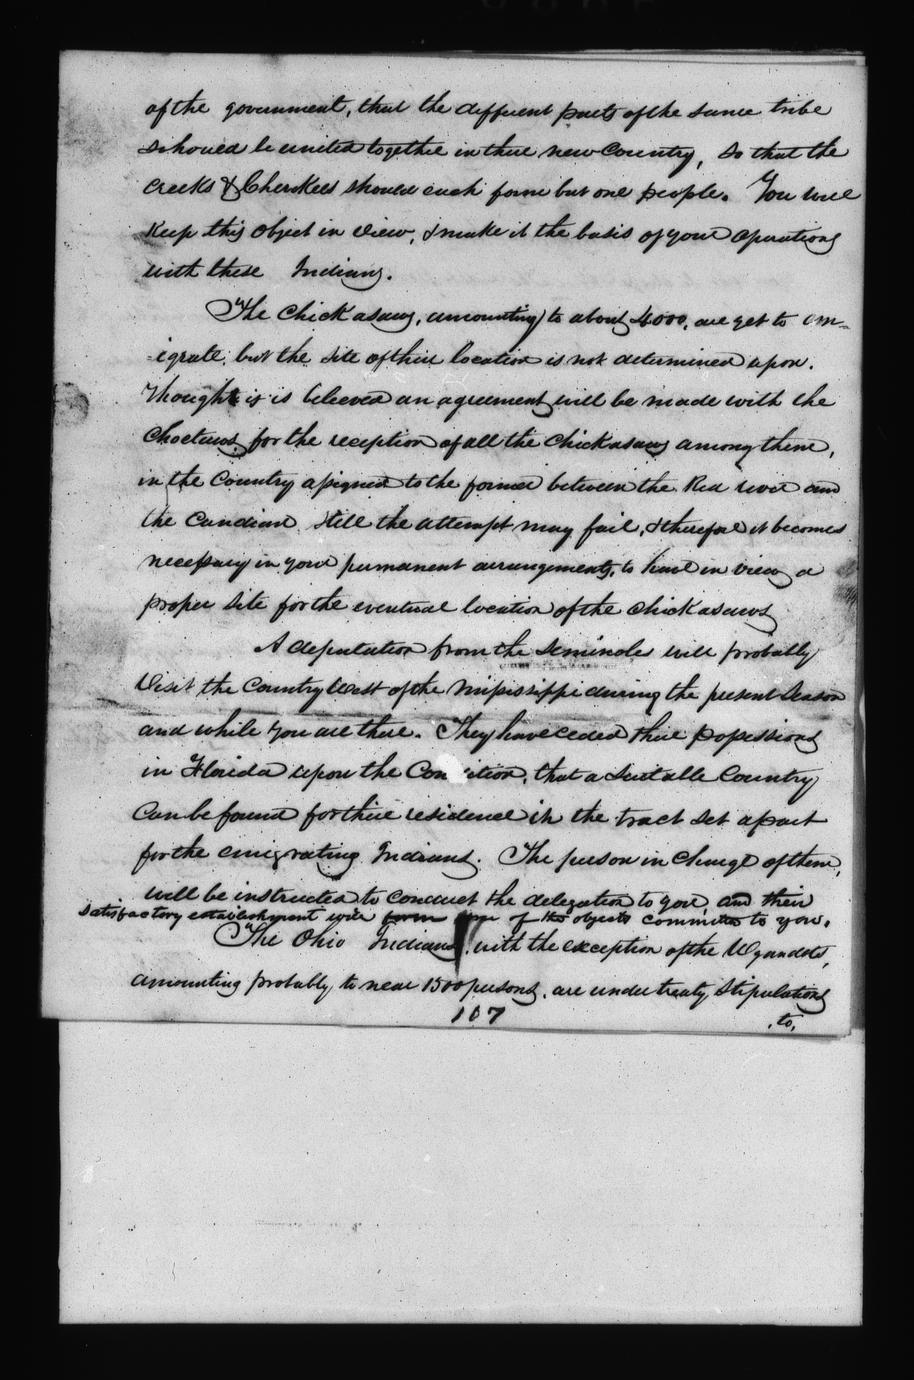 of the government, that the different parts of the same tribe
should be united together in their new Country, so that the
Creeks & Cherokees should each form but one people. You will
Keep this object in view, & make it the basis of your operations
with these Indians.
The Chickasaws, amounting to about 4000, are yet to em-
-igrate, but the site of their location is not determined upon.
Though it is believed an agreement will be made with the
Choctaws for the reception of all the Chickasaws among them,
in the Country assigned to the former between the Red river and
the Canadian. Still the attempt may fail, & therefore it becomes
necessary in your permanent arrangements, to have in view a
proper site for the eventual location of the Chickasaws
A deputation from the Seminoles will probably
visit the Country West of the Mississippi during the present season
and while you are there. They have ceded their possessions
in Florida upon the Condition, that a suitable Country
Can be found for their residence in the tract set apart
for the emigrating Indians. The person in charge of them,
will be instructed to conduct the delegation to you, and their
satisfactory establishment will form one of the objects committed to you.
The Ohio Indians, with the exception of the Wyandots,
amounting probably to near 1500 persons, are under treaty stipulations
107
to,